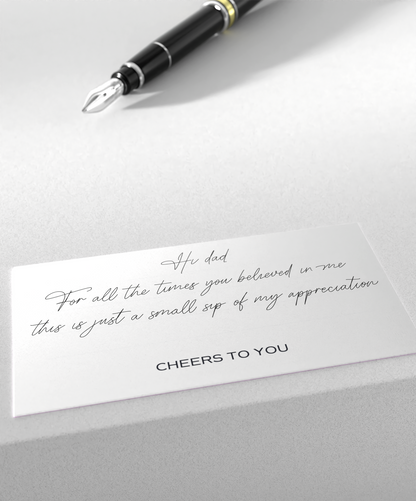 Hi dad
For all the times you believed in me
this is just a small sip of my appreciation
CHEERS TO YOU